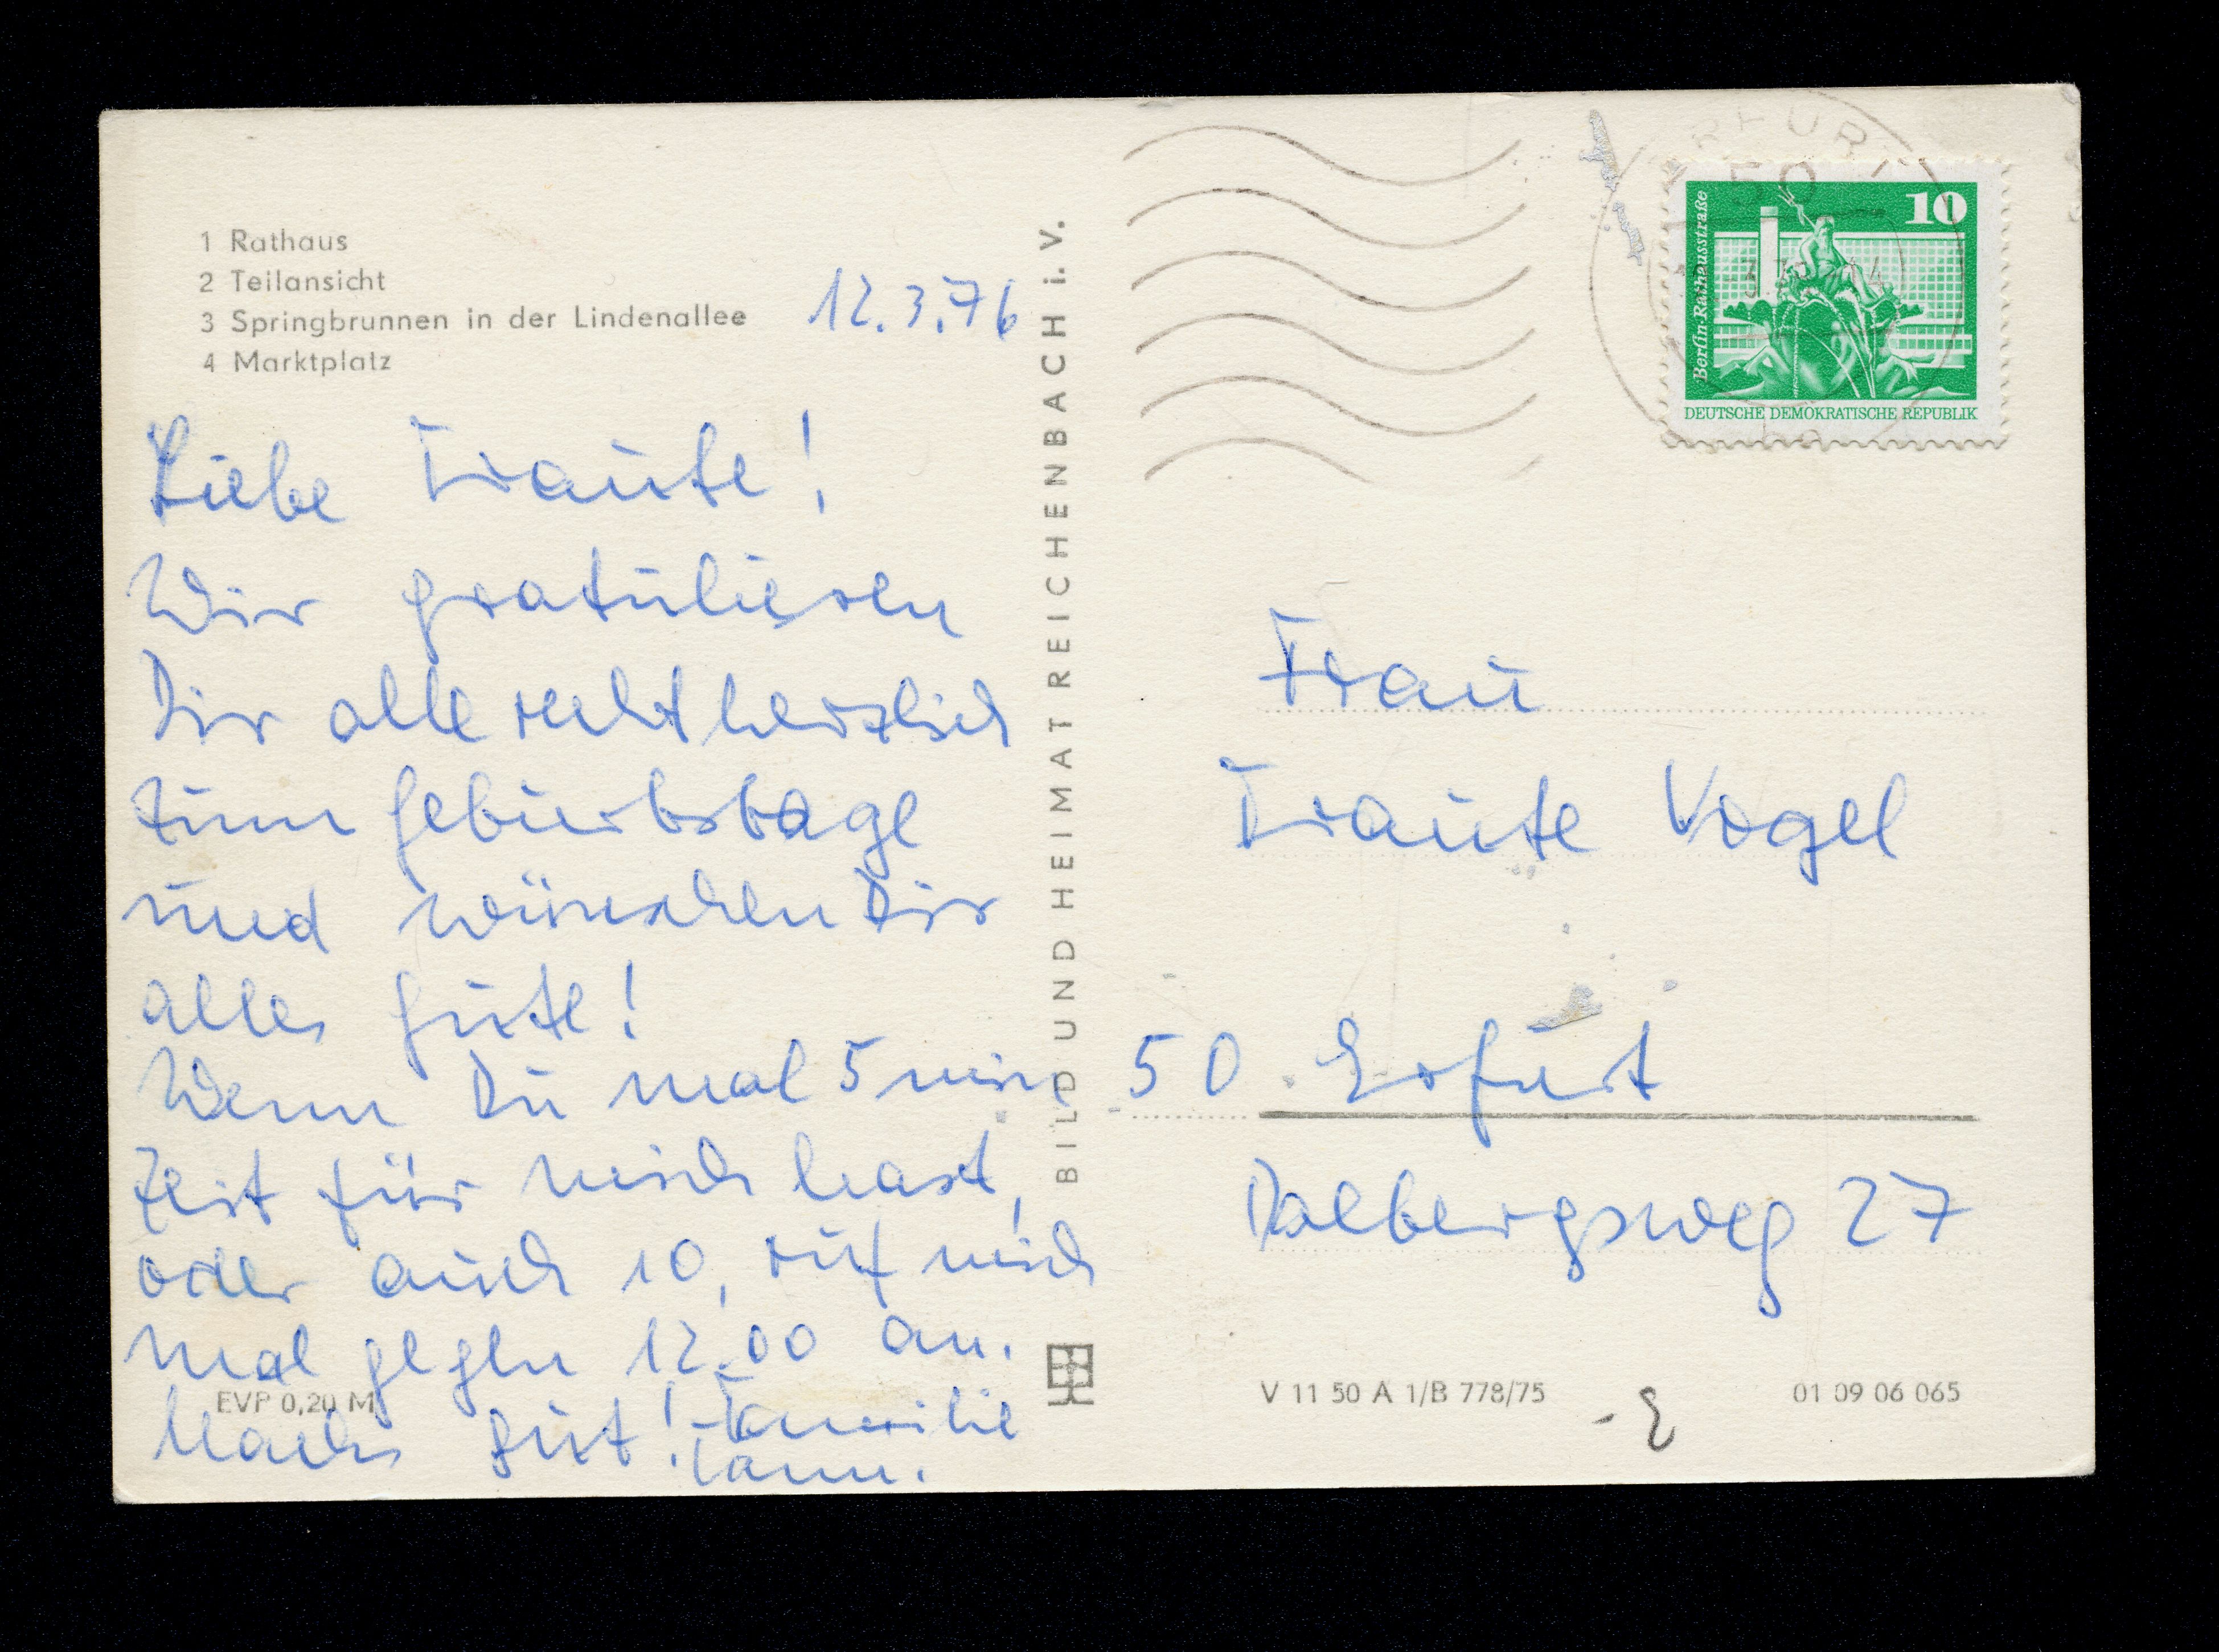 1 Rathaus
2 Teilansicht
3 Springbrunnen in der Lindenallee
4 Marktplatz
12.3.76
Liebe Traute!
Wir gratulieren
Dir alle recht herzlich
zum Geburtstage
und wünschen Dir
alles Gute!
Wenn Du mal 5 min
Zeit für mich hast,
oder auch 10, ruf mich
mal gegen 12.00 an.
Machs gut! Familie
EVP 0,20 M
BILD UND HEIMAT REICHENBACH i. V.
ERFURT
50
10
Berlin-Rathausstraße
DEUTSCHE DEMOKRATISCHE REPUBLIK
Frau
Traute Vogel
50 Erfurt
Dalbergsweg 27
V 11 50 A 1/B 778/75
01 09 06 065